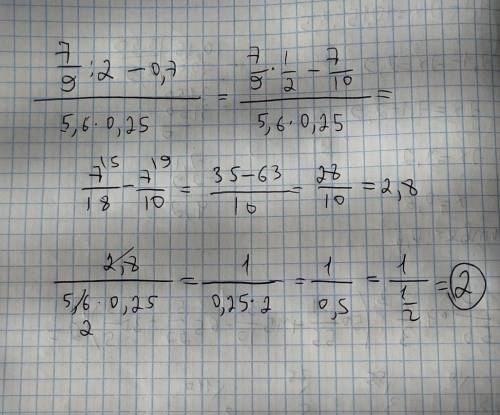 7/9 : 2 − 0,7 / 5,6 · 0,25 = 7/9 · 1/2 − 7/10 / 5,6 · 0,25 =
7^15/18 − 7^19/10 = 35−63/10 = 28/10 = 2,8
2,8 / 5,6 · 0,25 = 1 / 0,25 · 2 = 1 / 0,5 = 1 / 1/2 = 2
2